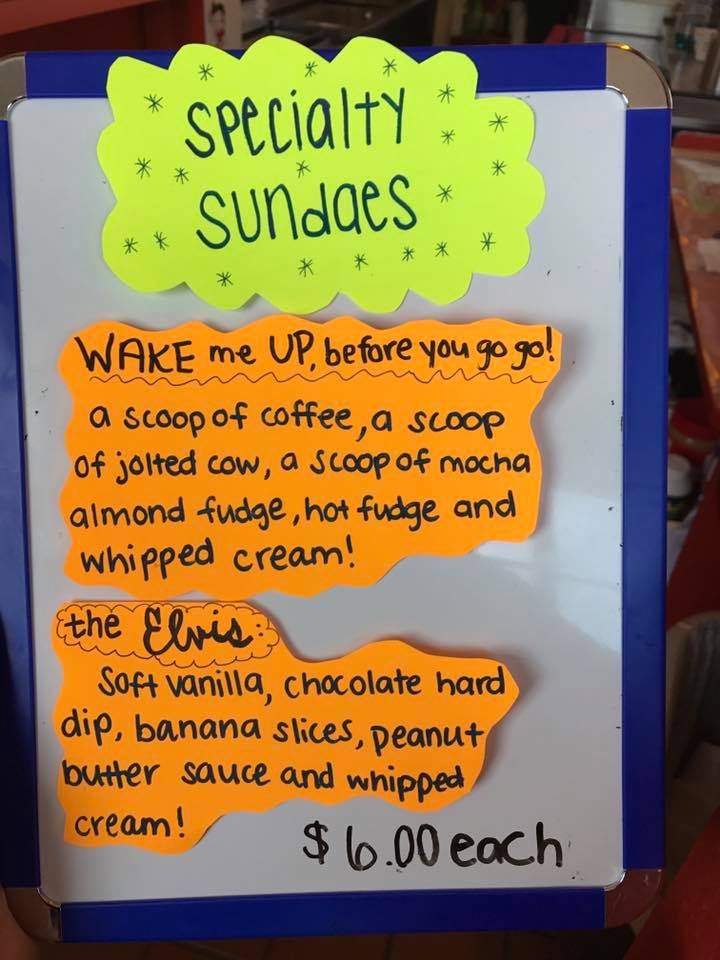 Specialty
Sundaes
WAKE me UP, before you go go!
a scoop of coffee, a scoop
of jolted cow, a scoop of mocha
almond fudge, hot fudge and
whipped cream!
the Elvis:
Soft vanilla, chocolate hard
dip, banana slices, peanut
butter sauce and whipped
cream!
$6.00 each